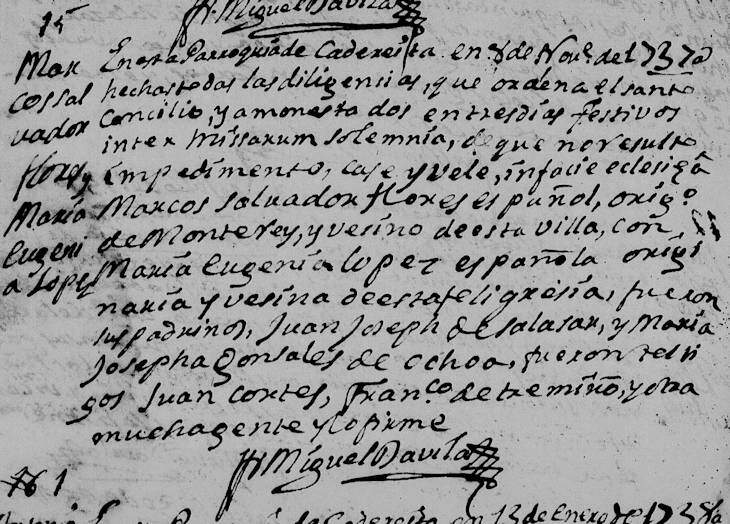 Fr. Miguel Davila
15
Mar
cos sal
vador
flores, y
Maria
Eugeni
a Lopes
En esta Parroquia de Cadereita en 8 de Nove. del 1737 a
hechas todas las diligensias, que ordena el santo
Concilio, y amonesta dos en tres dias festivos
inter missarum solemnia, de que no resulto
impedimento, case y vele, in facie eclesiæ a
Marcos Salvador flores español, orig.o
de Monterey, y vesino de esta villa, con
Maria Eugenia lopez española origi
naria y vesina de esta feligresia, fueron
sus padrinos, Juan Joseph de Salasar, y Maria
Josepha Gonsales de Ochoa, fueron testi
gos Juan Cortes, Fran.co de tremiño, y otra
mucha gente y lo firme
Fr. Miguel Davila
16 1
de Cadereita en 13 de Enero de 1738 a